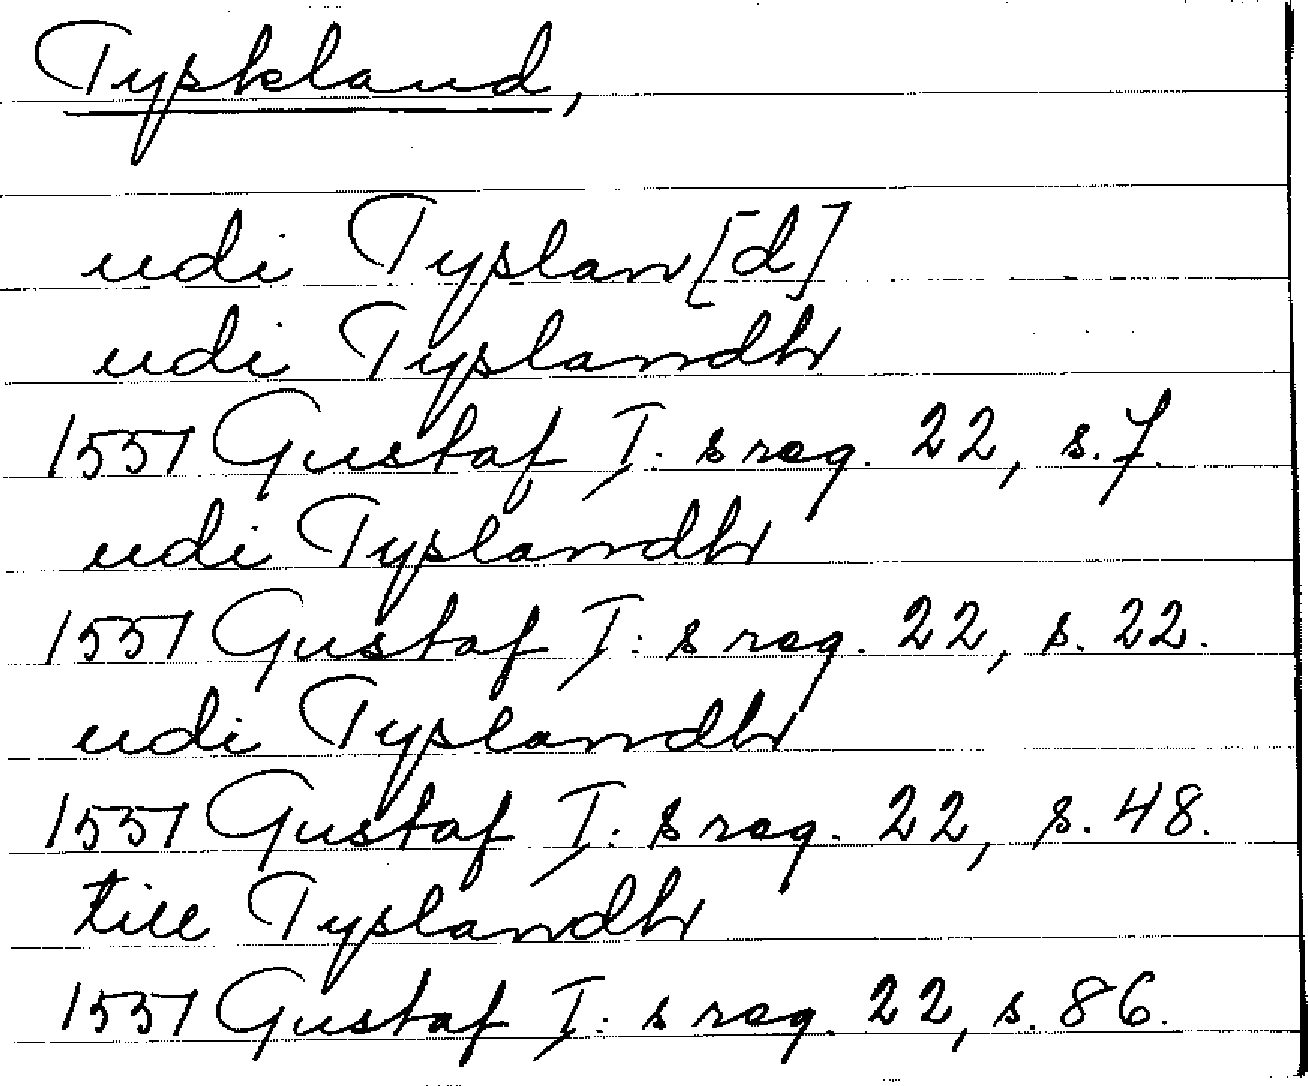 Tyskland,
udi Tyslan[d]
udi Tyslandh
1551 Gustaf I:s reg. 22, s. 7.
udi Tyslandh
1551 Gustaf I:s reg. 22, s. 22.
udi Tyslandh
1551 Gustaf I:s reg. 22, s. 48.
till Tyslandh
1551 Gustaf I:s reg. 22, s. 86.